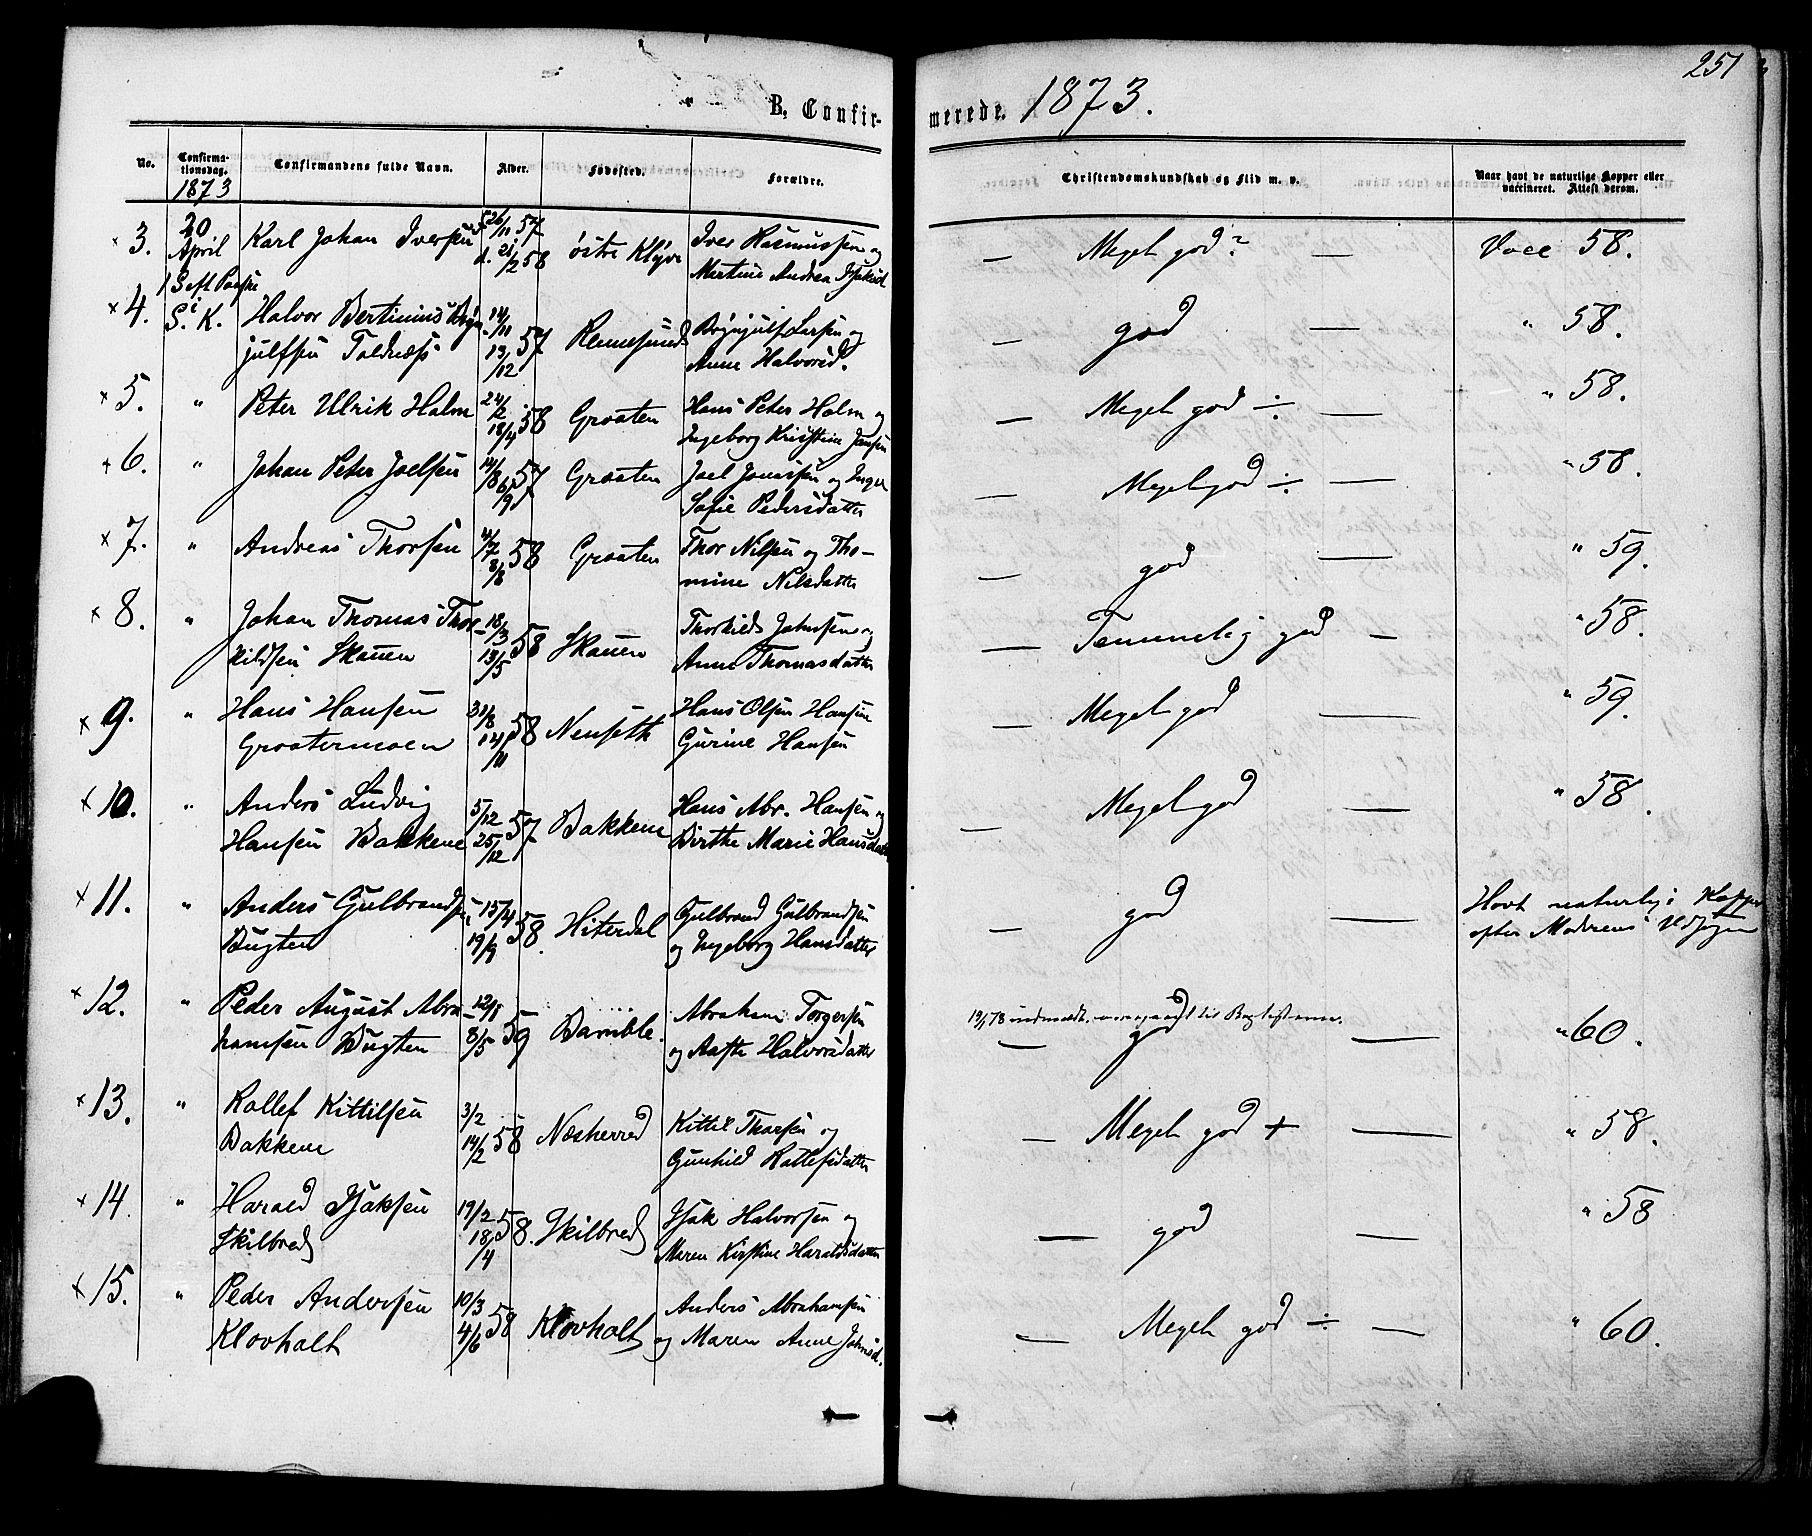 251
B, Confirmerede. 1873.
No. Confirmationsdag. Confirmandens fulde Navn. Alder. Fødested. Forældre. Christendomskundskab og Flid m. v. Naar havt de naturlige Kopper eller vaccineret. Attest derom.
1873
3. 20 April Karl Johan Iversen f. 26/11 57 østre Klyve Iver Rasmussen og — Meget god — Vacc 58.
1 S eft Paaske d. 21/2 58 Martine Andrea Isaksd
4. S. K. Halvor Bertinius Bryn- 14/11 57 Brynjulf Larsen og — god — " 58.
julfsen Toldnæss 13/12 Anne Halvorsd.
5. " Peter Ulrik Holm 24/2 58 Graaten Hans Peter Holm og — Meget god ÷ — " 58.
18/4 Ingeborg Kristine Jansen
6. " Johan Peter Joelsen 14/8 57 Graaten Joel Jonssen og Inger — Meget god ÷ — " 58.
6/9 Sofie Pedersdatter
7. " Andreas Thorsen 4/7 58 Graaten Thor Nilsen og Tho- — god — " 59.
8/8 mine Nilsdatter
8. " Johan Thomas Thor- 18/3 58 Skauen Thorkild Johnsen og — Temmelig god — " 58.
kildsen Skauen 13/5 Anne Thomasdatter
9. " Hans Hansen 31/8 58 Nenseth Hans Olsen Hansen — Meget god — " 59.
Graatenmoen 14/11 Gurine Hansen
10. " Anders Ludvig 5/12 57 Bakkene Hans Abr. Hansen og — Meget god — " 58.
Hansen Bakkene 25/12 Birthe Marie Hansdatter
11. " Anders Gulbrandsen 15/4 58. Hiterdal Gulbrand Gulbrandsen — god — Havt naturlige Kopper
Bugten 19/9 og Ingeborg Hansdatter efter Moderens Udsigen
12. " Peder August Abra- 12/1 59 Bamble. Abraham Torgersen 19/1 78 indmeldt overgaaet til Baptisterne.
hamsen Bugten 8/5 og Aaste Halvorsdatter — god — " 60.
13. " Rollef Kittilsen 3/2 58 Næsherred Kittil Thorsen og — Meget god + — " 58.
Bakkene 14/2 Gunhild Rollefsdatter
14. " Harald Isaksen 19/2 58. Skilbred Isak Halvorsen og — god — " 58
Skilbred 18/4 Maren Kirstine Haraldsdatter
15. " Peder Andersen 10/3 58 Klovholt Anders Abrahamsen — Meget god ÷ — " 60.
Klovholt 4/6 og Maren Anne Johnsd.